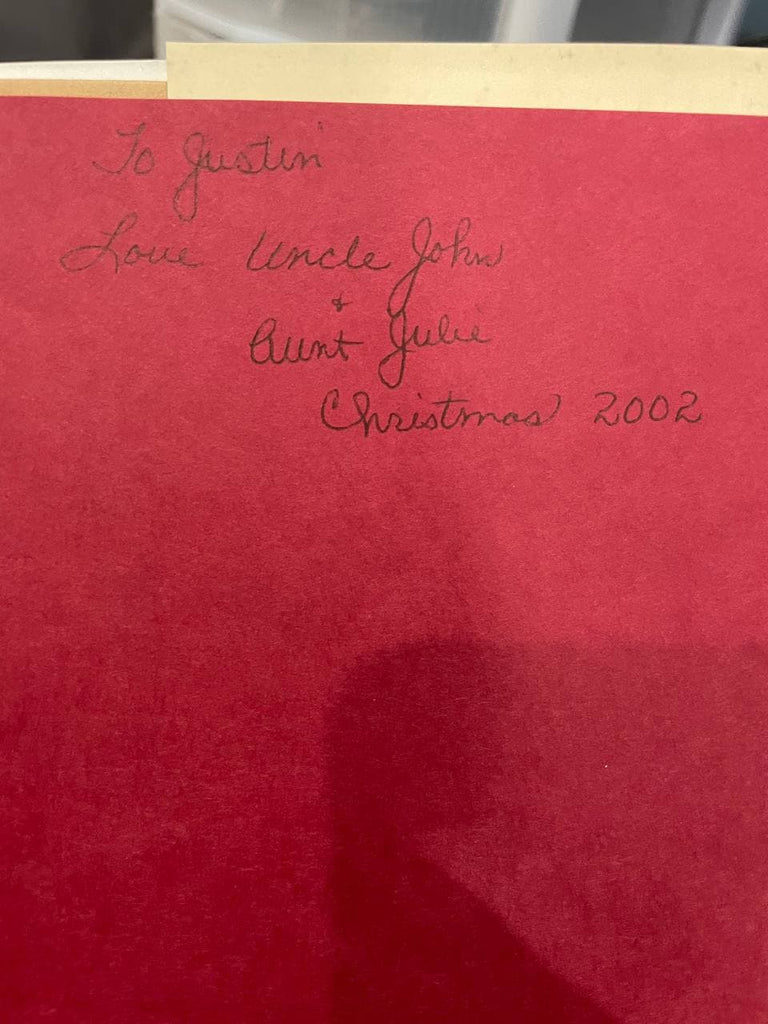 To Justin
Love Uncle John
&
Aunt Julie
Christmas 2002